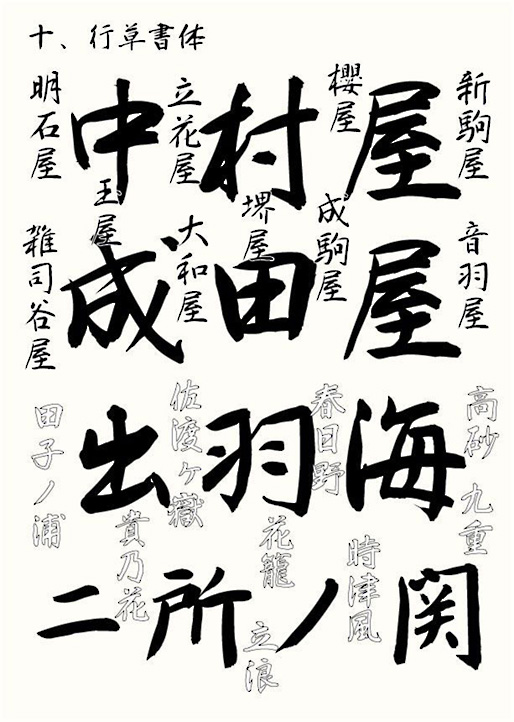 十、行草書体
明石屋
中村屋
立花屋
櫻屋
新駒屋
玉屋
堺屋
成駒屋
大和屋
音羽屋
雑司谷屋
成田屋
田子ノ浦
佐渡ケ嶽
春日野
高砂
九重
出羽海
貴乃花
花籠
時津風
二所ノ関
立浪